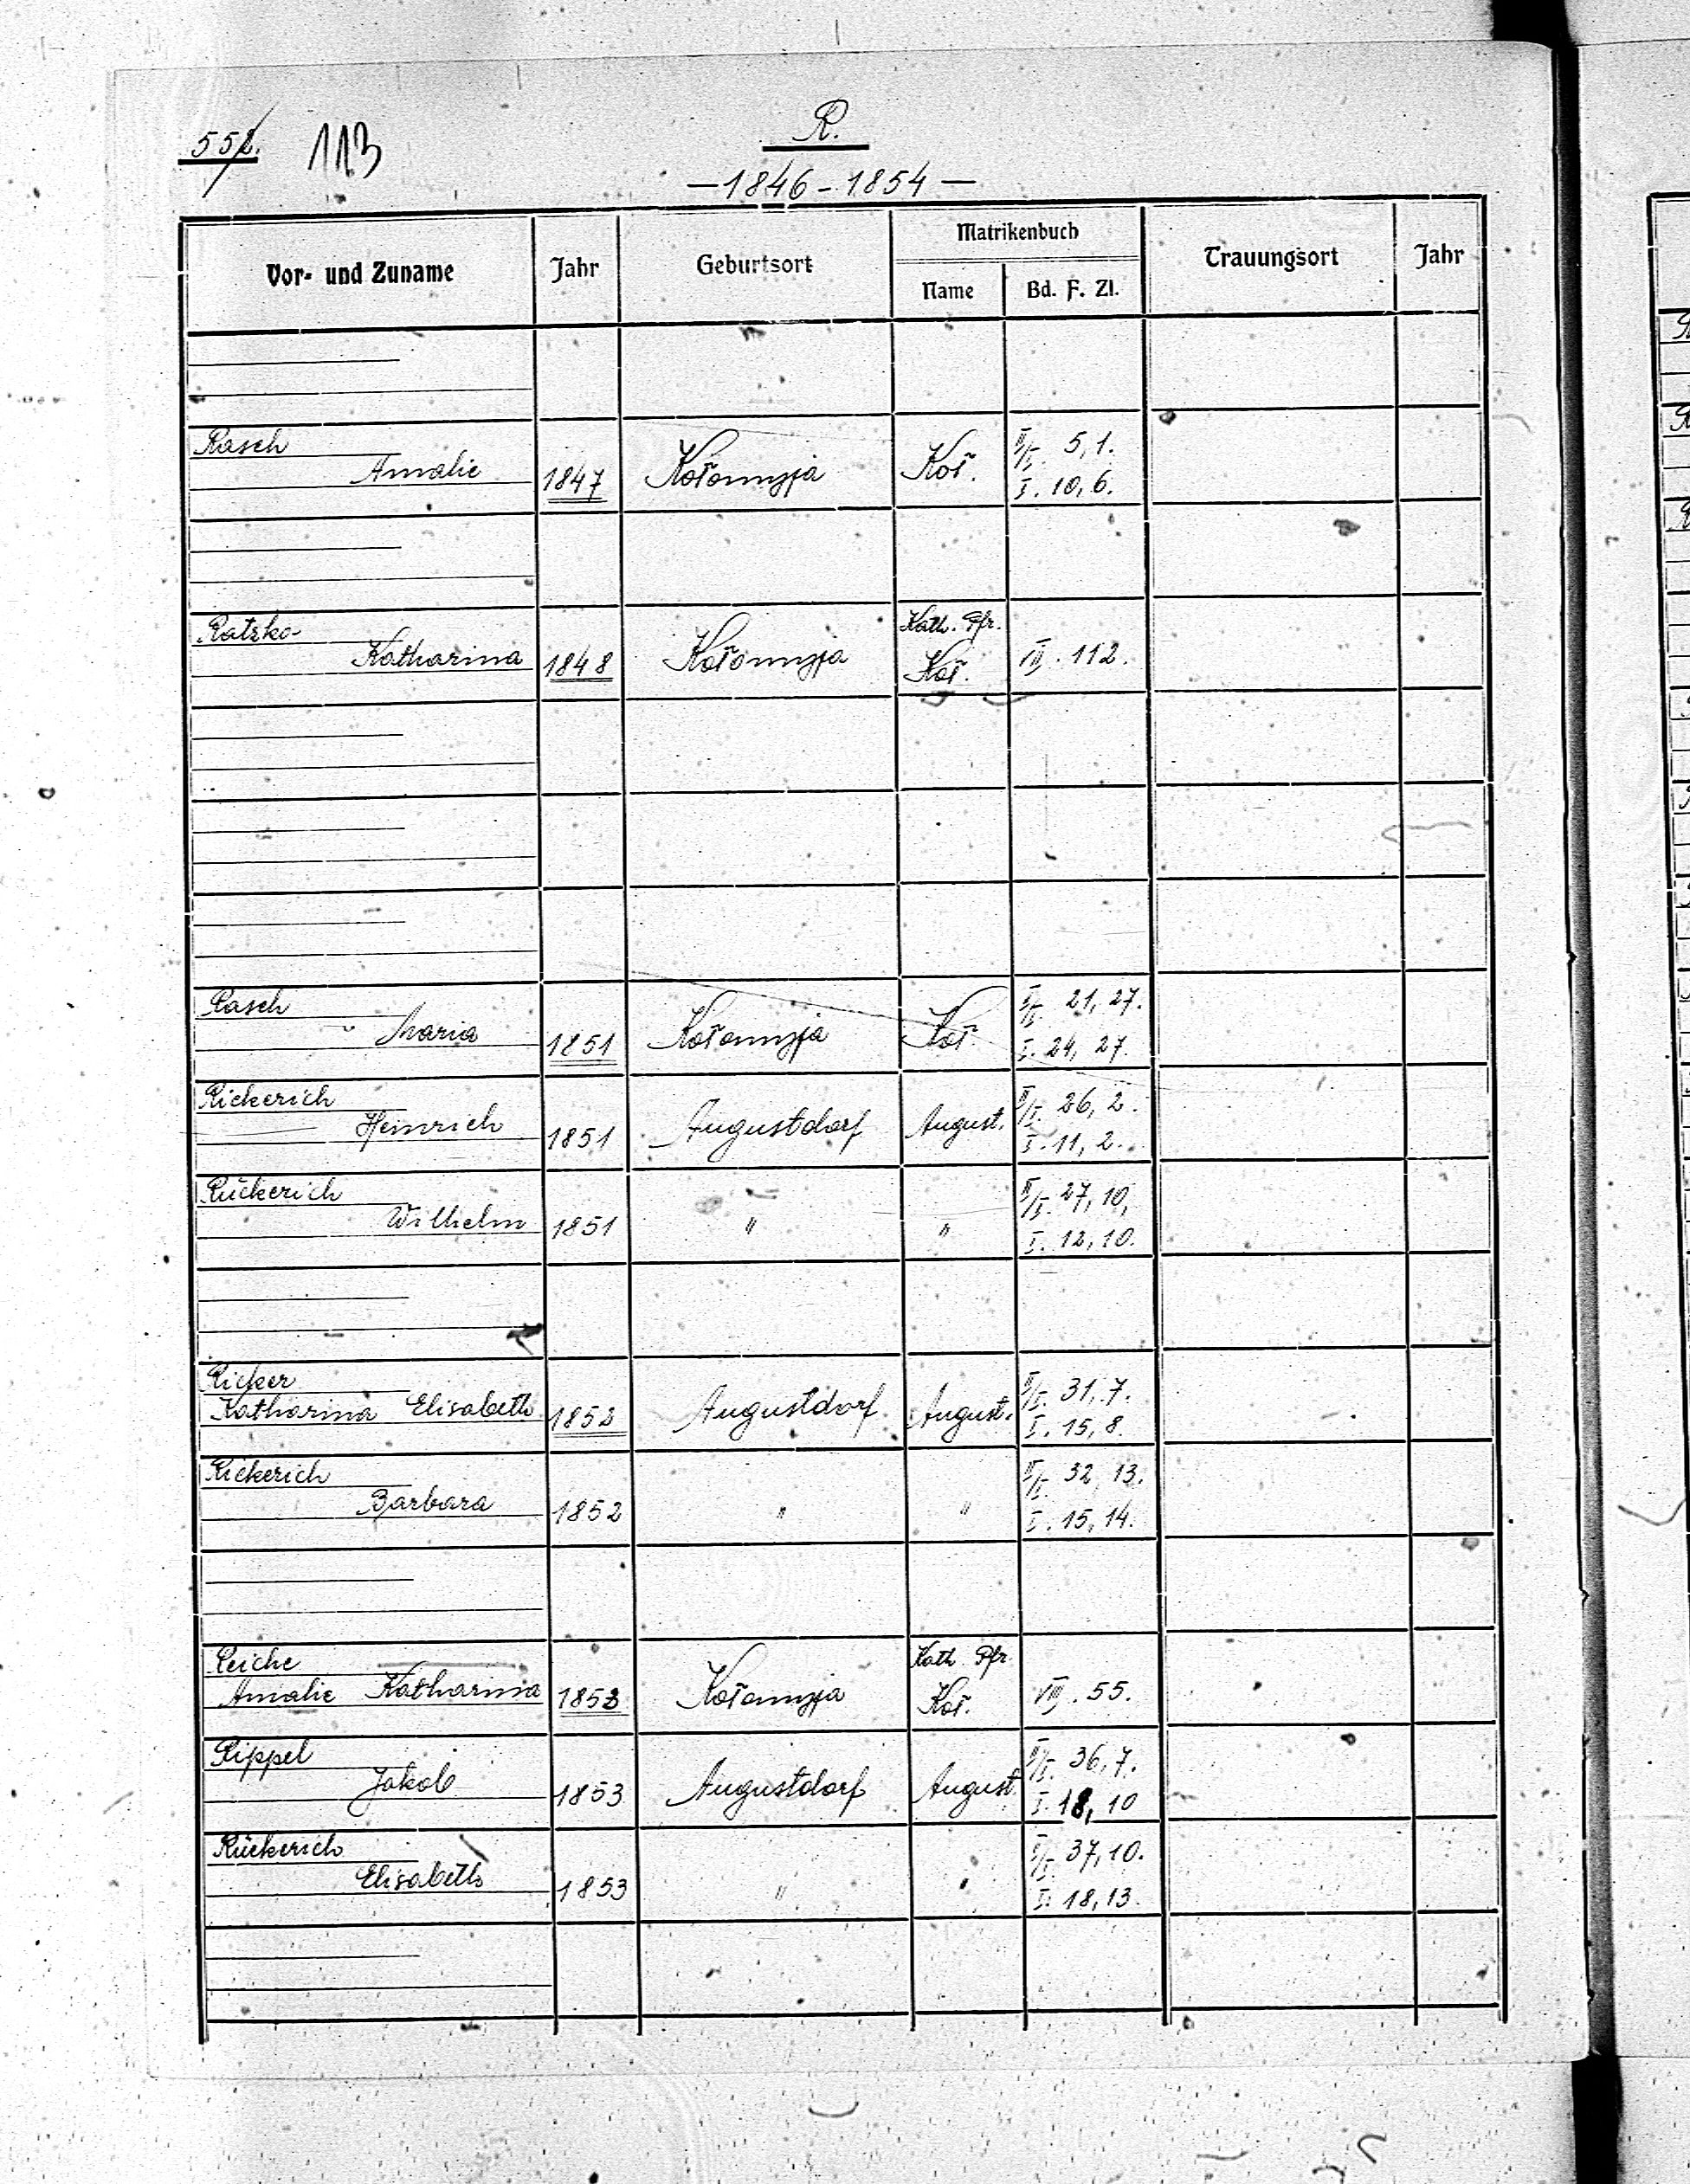 552. 113
R.
— 1846 - 1854 —
Vor- und Zuname Jahr Geburtsort Matrikenbuch Trauungsort Jahr
Name Bd. F. Zl.
Rasch II/I. 5, 1.
Amalie 1847 Kołomyja Koł. I. 10, 6.
Ratzko Kath. Pfr.
Katharina 1848 Kołomyja Koł. VII. 112.
Rasch II/I. 21, 27.
Maria 1851 Kołomyja Koł. I. 24, 27.
Rickerich II/I. 26, 2.
Heinrich 1851 Augustdorf August. I. 11, 2.
Rückerich II/I. 27, 10,
Wilhelm 1851 " " I. 12, 10.
Ricker II/I. 31, 7.
Katharina Elisabeth 1852 Augustdorf August. I. 15, 8.
Rickerich II/I. 32, 13.
Barbara 1852 " " I. 15, 14.
Reiche Kath. Pfr.
Amalie Katharina 1853 Kołomyja Koł. VIII. 55.
Rippel II/I. 36, 7.
Jakob 1853 Augustdorf August. I. 18, 10
Rückerich II/I. 37, 10.
Elisabeth 1853 " " I. 18, 13.